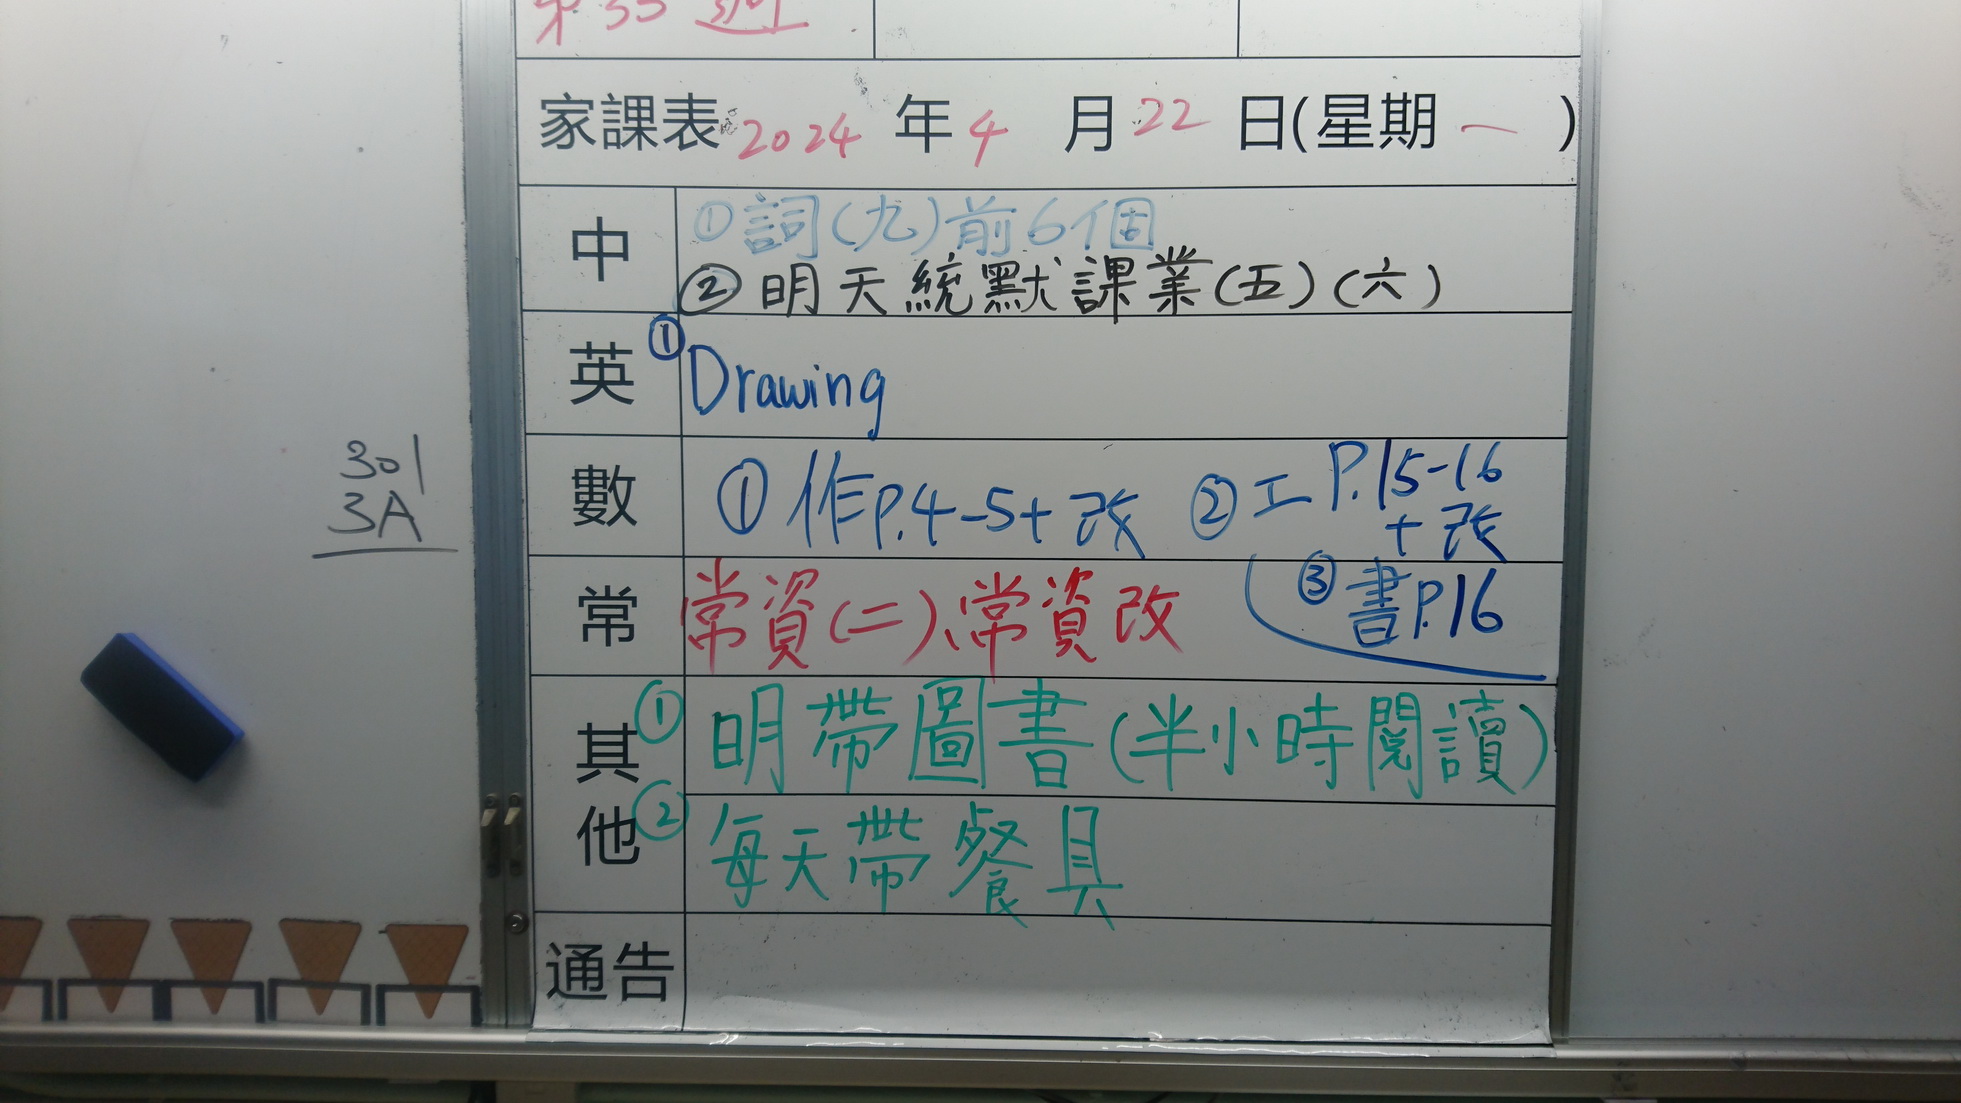 第33週
家課表 2024 年 4 月 22 日(星期 一 )
中
①詞(九)前6個
②明天統默課業(五)(六)
英
① Drawing
數
①作P.4-5+改 ②工P.15-16
+改
③書P.16
常
常資(二)、常資改
301
3A
其他
①明帶圖書(半小時閱讀)
②每天帶餐具
通告